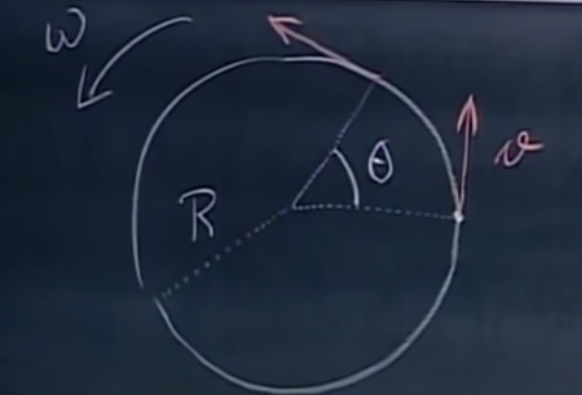 ω
θ
v
R